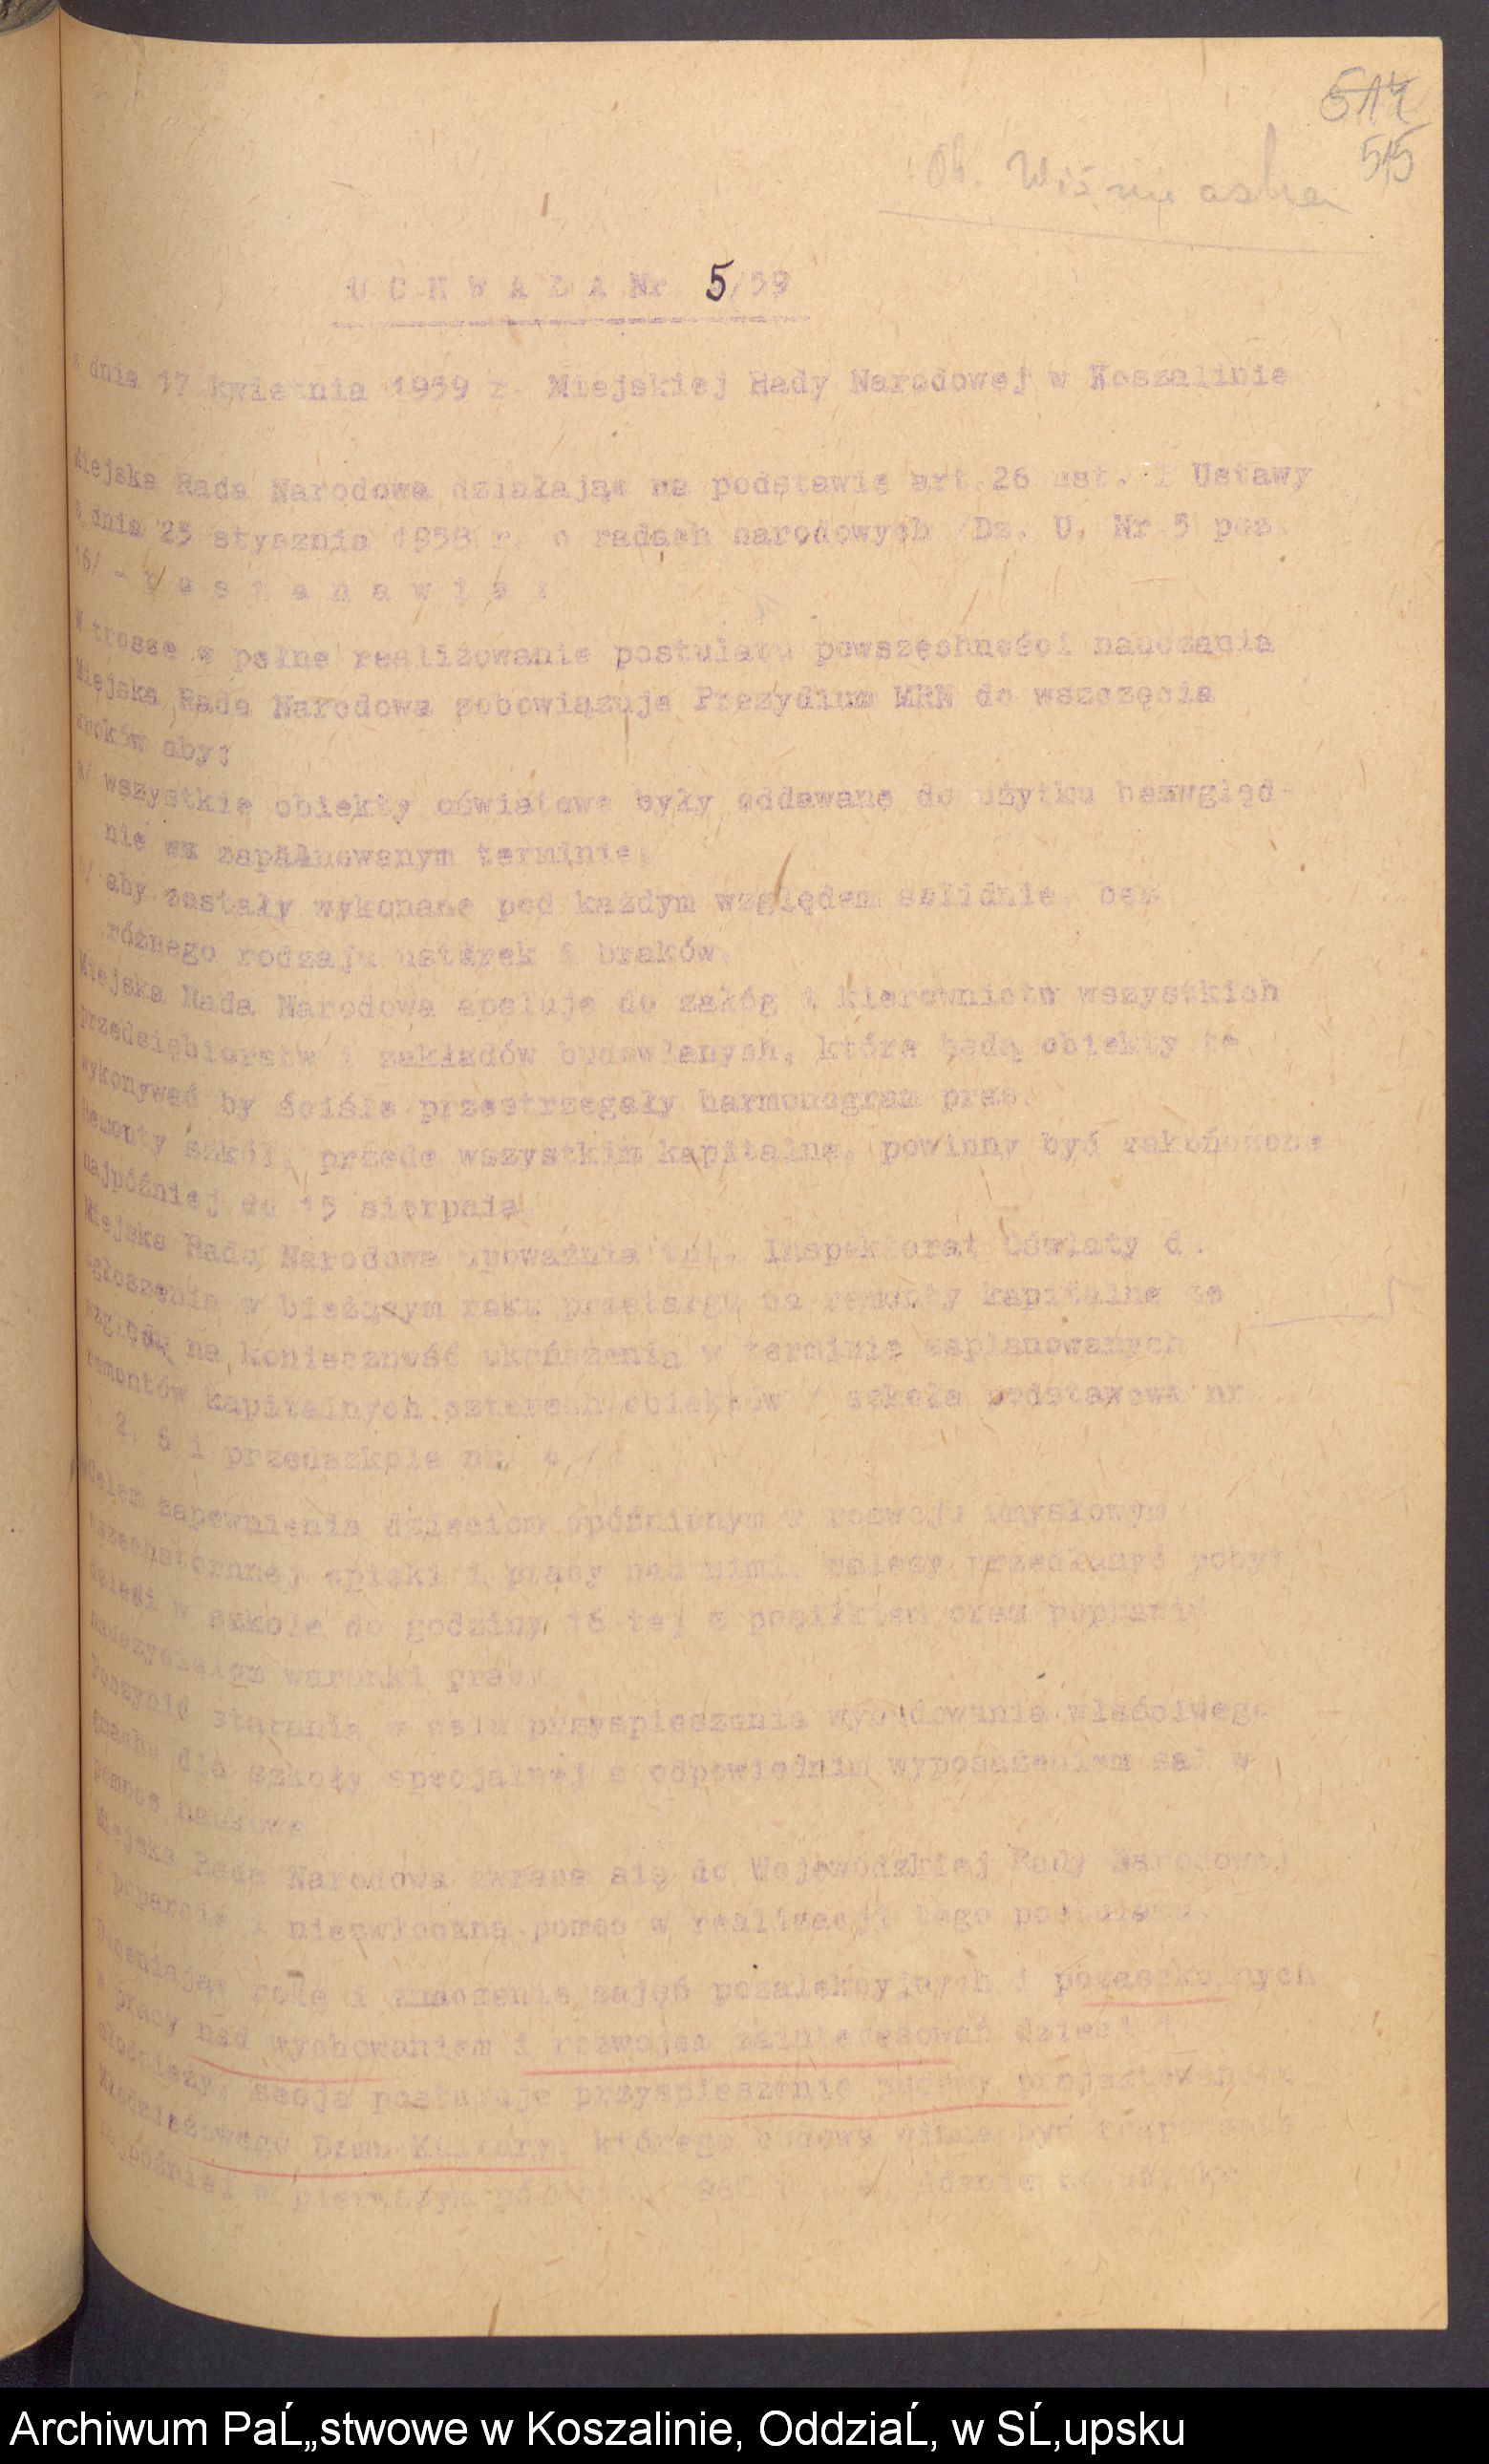 517
515
Ob.
U C H W A Ł A Nr 5/59
z dnia 17 kwietnia 1959 r. Miejskiej Rady Narodowej w Koszalinie
Miejska Rada Narodowa działając na podstawie art. 26 ust. 1 Ustawy
z dnia 25 stycznia 1958 r. o radach narodowych /Dz. U. Nr 5 poz.
16/ - p o s t a n a w i a :
W trosce o pełne realizowanie postulatu powszechności nauczania
Miejska Rada Narodowa zobowiązuje Prezydium MRN do wszczęcia
kroków aby:
a/ wszystkie obiekty oświatowe były oddawane do użytku bezwzględ-
nie wx zapālnowanym terminie,
b/ aby zostały wykonane pod każdym względem solidnie, bez
różnego rodzaju usterek i braków.
Miejska Rada Narodowa apeluje do załóg i kierownictw wszystkich
przedsiębiorstw i zakładów budowlanych, które będą obiekty te
wykonywać by ściśle przestrzegały harmonogram prac.
Remonty szkół, przede wszystkim kapitalne, powinny być zakończone
najpóźniej do 15 sierpnia.
Miejska Rada Narodowa upoważnia Inspektorat Oświaty d.
ogłoszenia w bieżącym roku przetargu na remonty kapitalne ze
względu na konieczność ukończenia w terminie zaplanowanych
remontów kapitalnych czterech obiektów / szkoła podstawowa nr
2, 6 i przedszkole nr 4 /
Celem zapewnienia dzieciom opóźnionym w rozwoju umysłowym
wszechstornnej opieki i pracy nad nimi, należy przedłużyć pobyt
dzieci w szkole do godziny 16 tej z posiłkiem oraz poprawić
nauczycielom warunki pracy.
Poczynić starania w celu przyspieszenia wybudowania właściwego
gmachu dla szkoły specjalnej z odpowiednim wyposażeniem sal w
pomoce naukowe.
Miejska Rada Narodowa zwraca się do Wojewódzkiej Rady Narodowej
o poparcie i niezwłoczną pomoc w realizacji tego postulatu.
Doceniając rolę i znaczenie zajęć pozalekcyjnych i pozaszkolnych
w pracy nad wychowaniem i rozwojem zainteresowań dzieci i
młodzieży, sesja postuluje przyspieszenie budowy projektowanego
Młodzieżowego Domu Kultury, którego budowa winna być rozpoczęta
najpóźniej w pierwszym
Archiwum PaĹ„stwowe w Koszalinie, OddziaĹ‚ w SĹ‚upsku